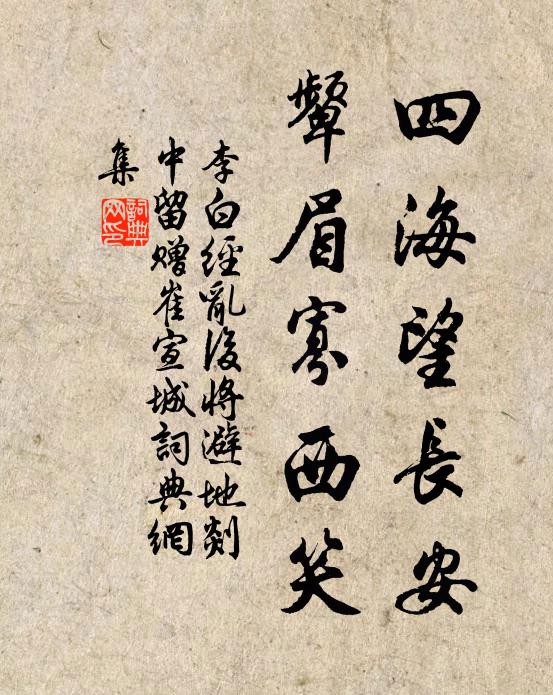 四海望長安
顰眉寡西笑
李白經亂後將避地剡
中留贈崔宣城詞典網
集
詞典網印